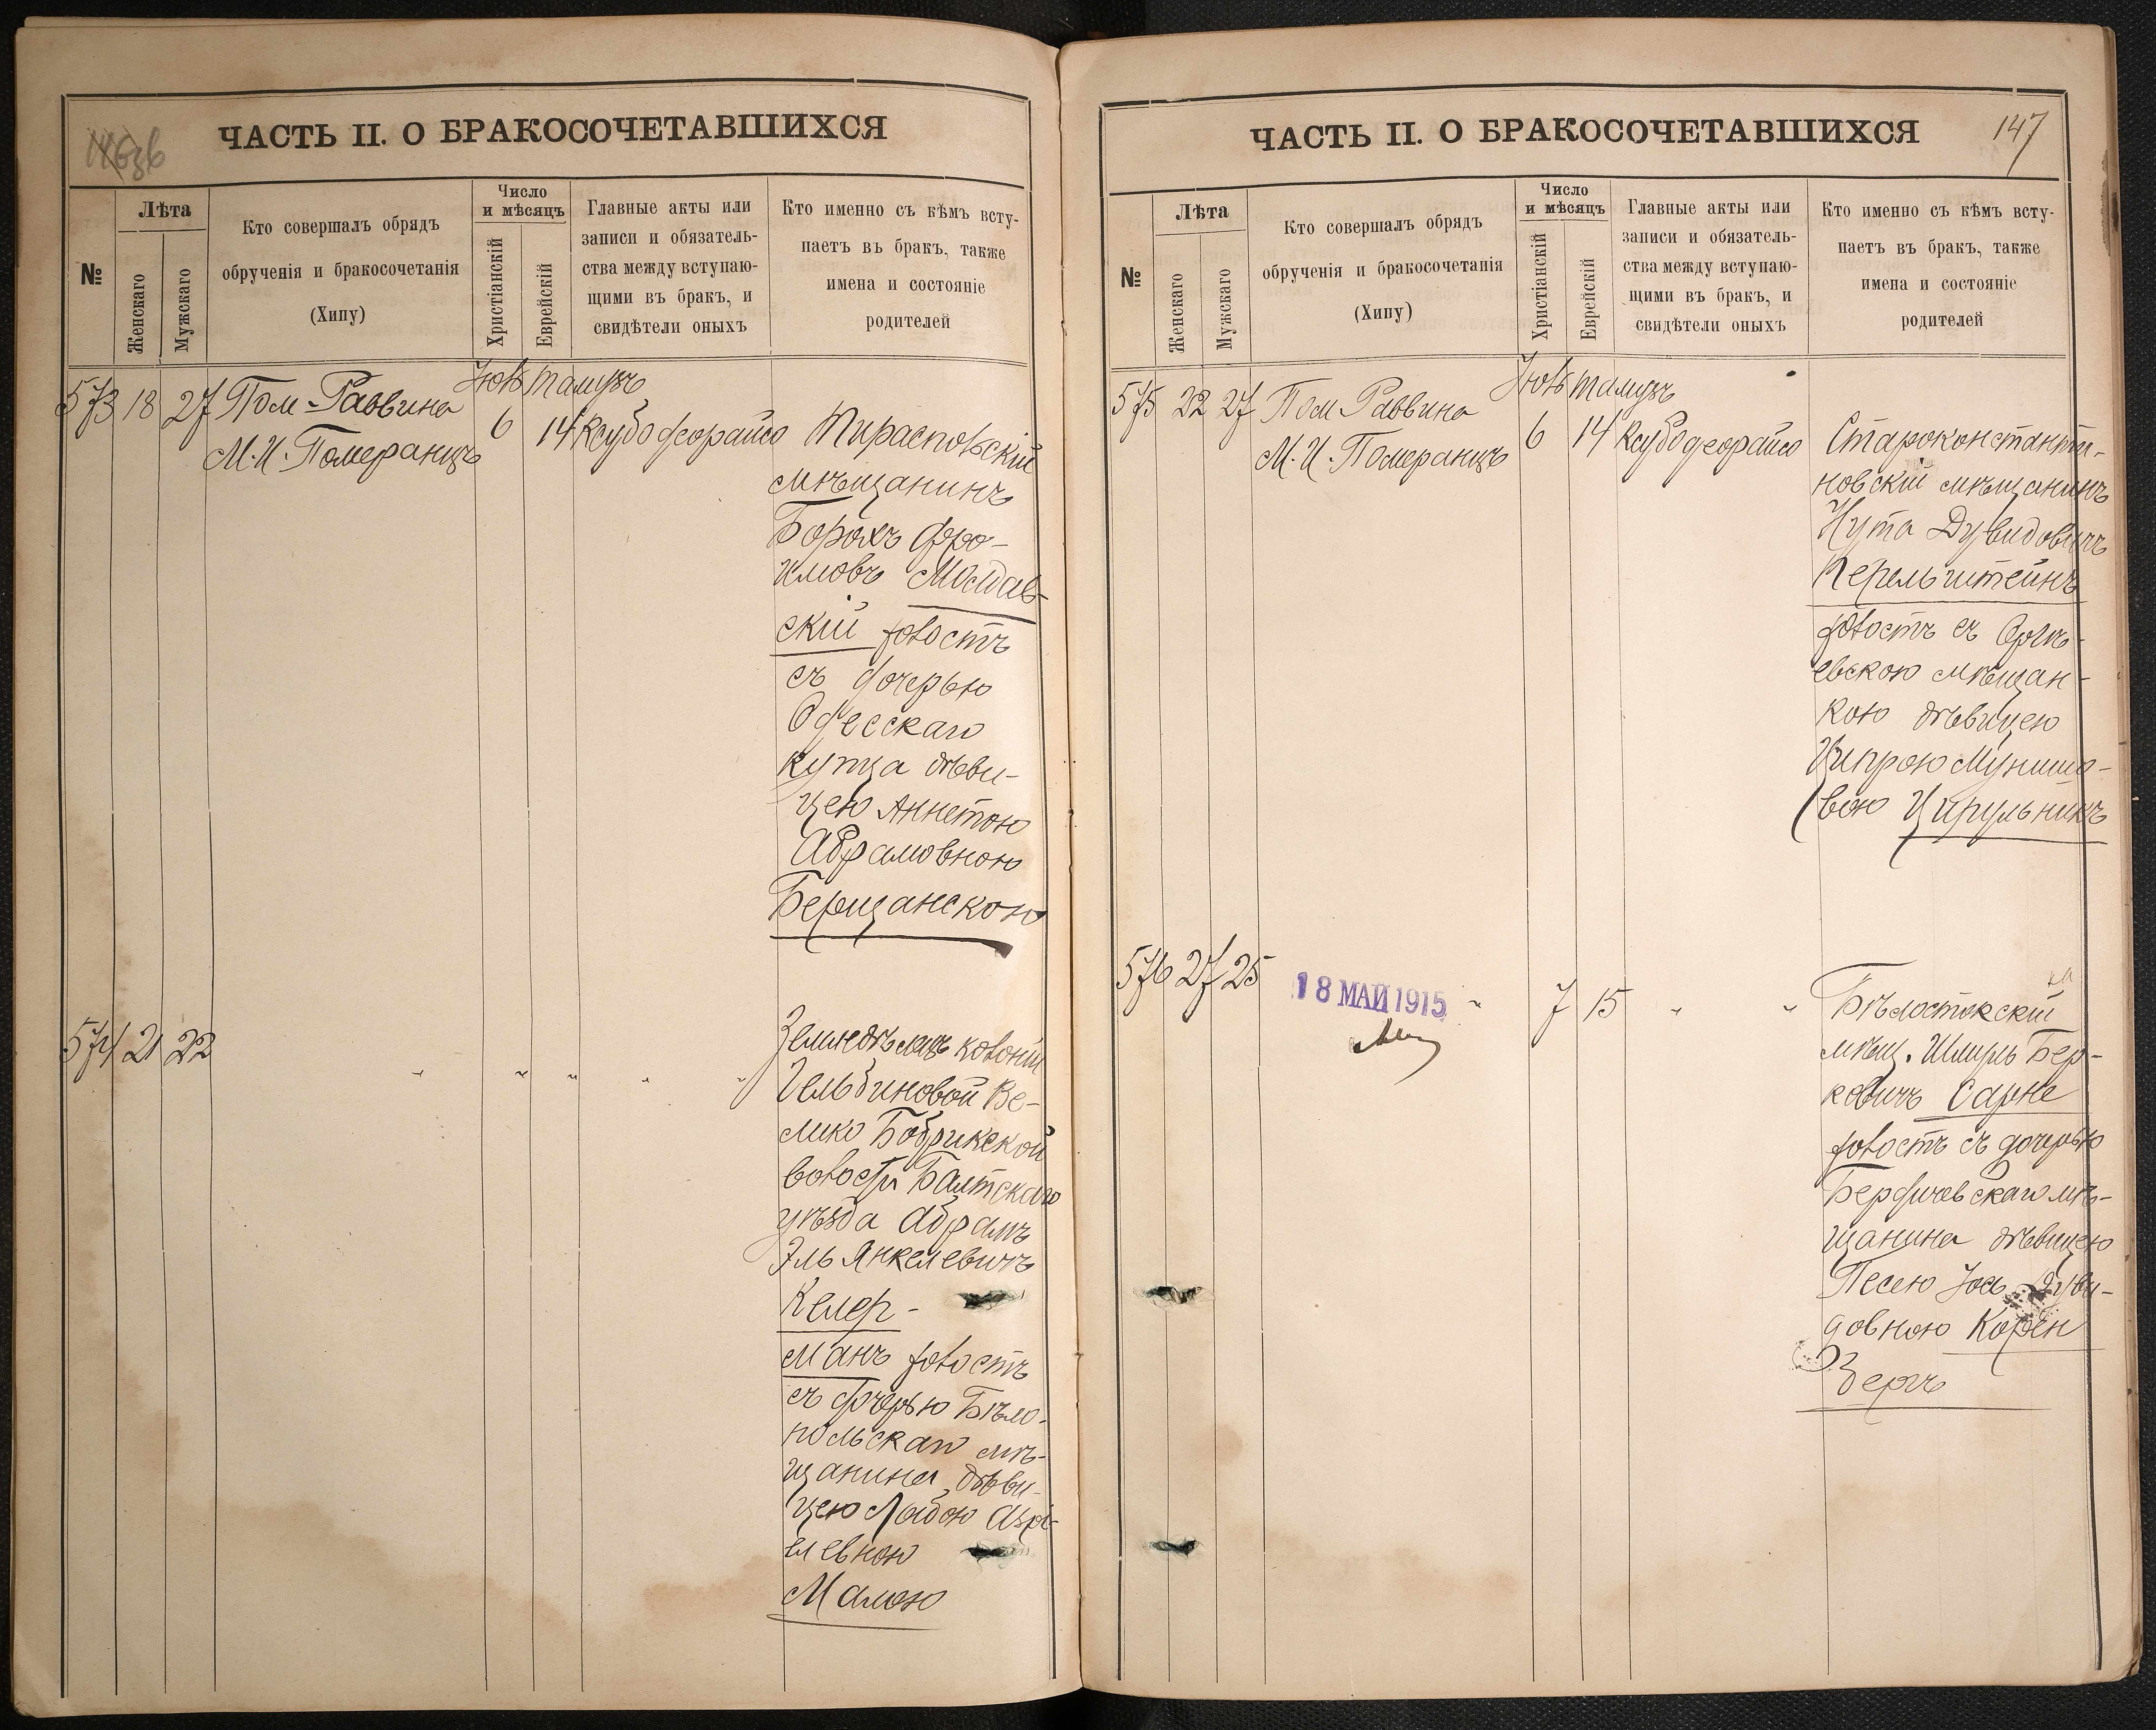 ЧАСТЬ II. О БРАКОСОЧЕТАВШИХСЯ
№
Лѣта
Женскаго
Мужскаго
Кто совершалъ обрядъ
обрученія и бракосочетанія
(Хипу)
Число
и мѣсяцъ
Христіанскій
Еврейскій
Главные акты или
записи и обязатель-
ства между вступаю-
щими въ бракъ, и
свидѣтели оныхъ
Кто именно съ кѣмъ всту-
паетъ въ бракъ, также
имена и состояніе
родителей
573 18 27 Пом. Раввина
М. И. Померанцъ
Іюль Тамузъ
6 14 Ксубо деорайсо
Тираспольскій
мѣщанинъ
Борохъ Фро-
имовъ Молдав-
скій холостъ
съ дочерью
Одесскаго
купца дѣви-
цею Аннетою
Абрамовною
Берщанскою
574 21 22 " " " " "
Земледѣлецъ колоніи
Гельбиновой Ве-
лико Бобрикской
волости Балтскаго
уѣзда Абрамъ
Эль Янкелевичъ
Келер-
манъ холостъ
съ дочерью Бѣло-
польскаго мѣ-
щанина дѣви-
цею
елевною
Малою
ЧАСТЬ II. О БРАКОСОЧЕТАВШИХСЯ
147
№
Лѣта
Женскаго
Мужскаго
Кто совершалъ обрядъ
обрученія и бракосочетанія
(Хипу)
Число
и мѣсяцъ
Христіанскій
Еврейскій
Главные акты или
записи и обязатель-
ства между вступаю-
щими въ бракъ, и
свидѣтели оныхъ
Кто именно съ кѣмъ всту-
паетъ въ бракъ, также
имена и состояніе
родителей
575 22 27 Пом. Раввина
М. И. Померанцъ
Іюль Тамузъ
6 14 Ксубо деорайсо
Староконстанти-
новскій мѣщанинъ
Нута Дувидовичъ
Перельштейнъ
холостъ съ Оргѣ-
евскою мѣщан-
кою дѣвицею
Ципрою Мунишо-
вою Цирульникъ
576 27 25
18 МАЙ 1915
" 7 15 " "
Бѣлостокскій
мѣщ. Шмиль Бер-
ковичъ Сарне
холостъ съ дочерью
Бердичевскаго мѣ-
щанина дѣвицею
Песею Іось Дуви-
довною Корен
Зергъ